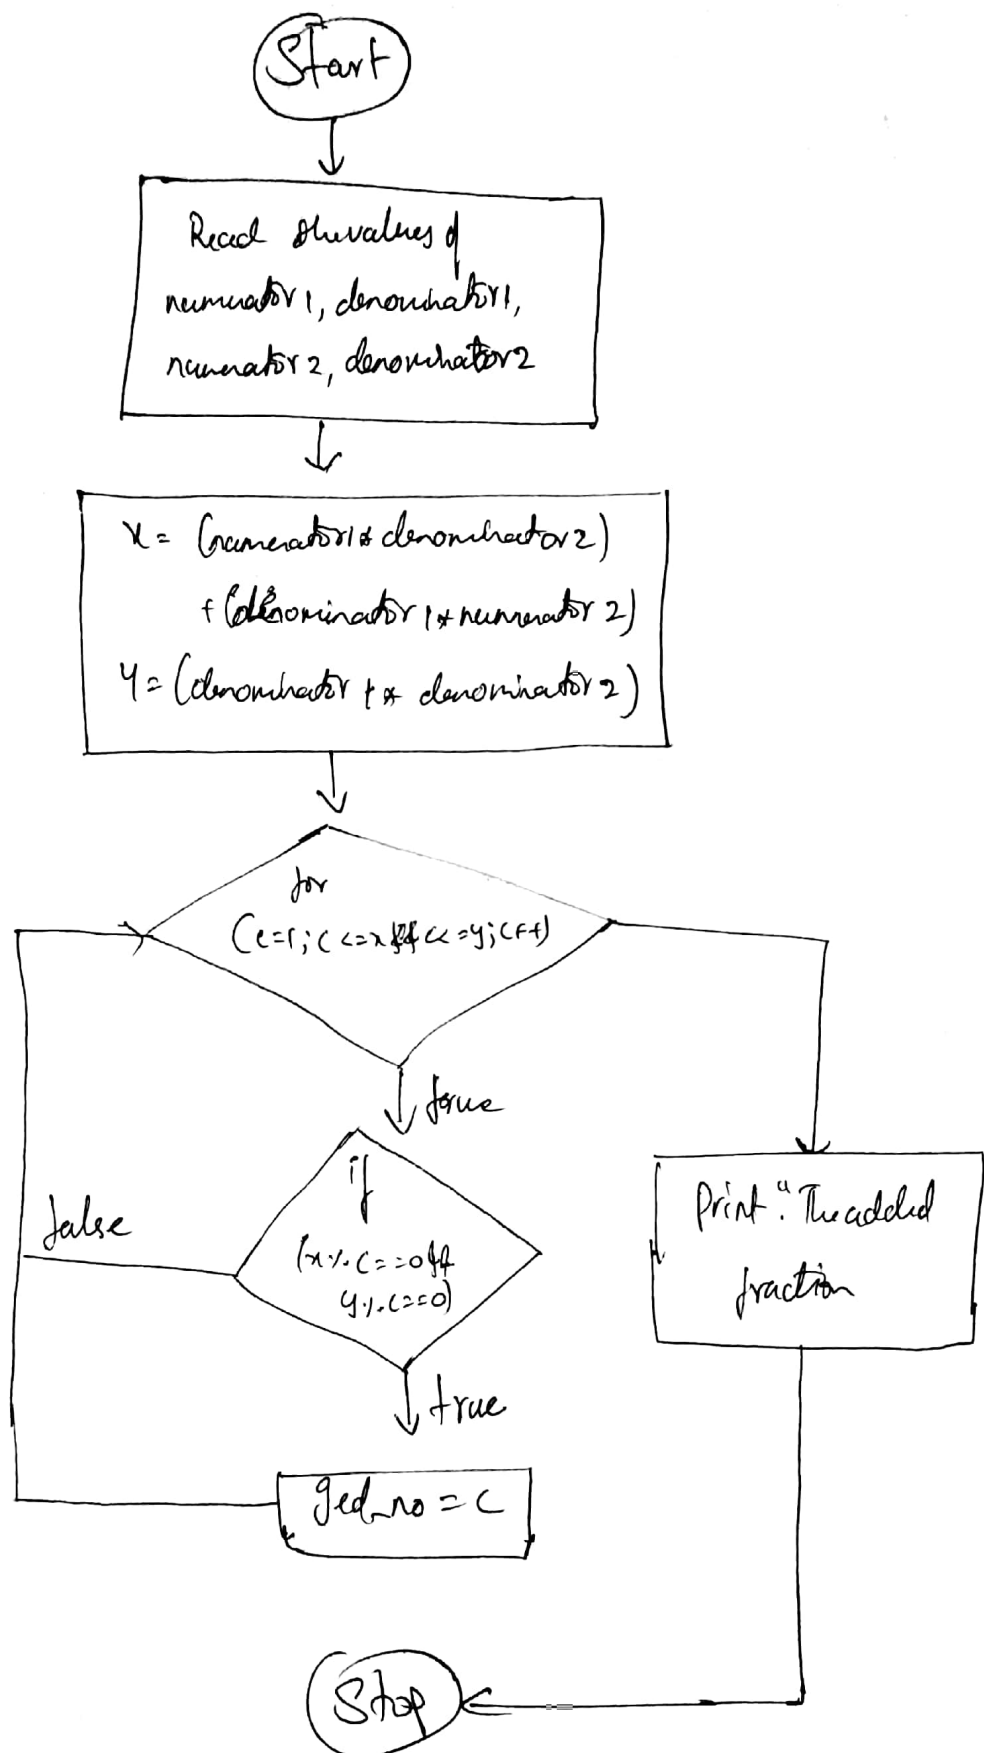 Start
Read the values of
numerator 1, denominator 1,
numerator 2, denominator 2
x = (numerator 1 * denominator 2)
+ (denominator 1 * numerator 2)
y = (denominator 1 * denominator 2)
for
(c=1; c<=x && c<=y; c++)
true
if
(x%c==0 &&
y%c==0)
false
true
gcd_no = c
Print "The added
fraction
Stop